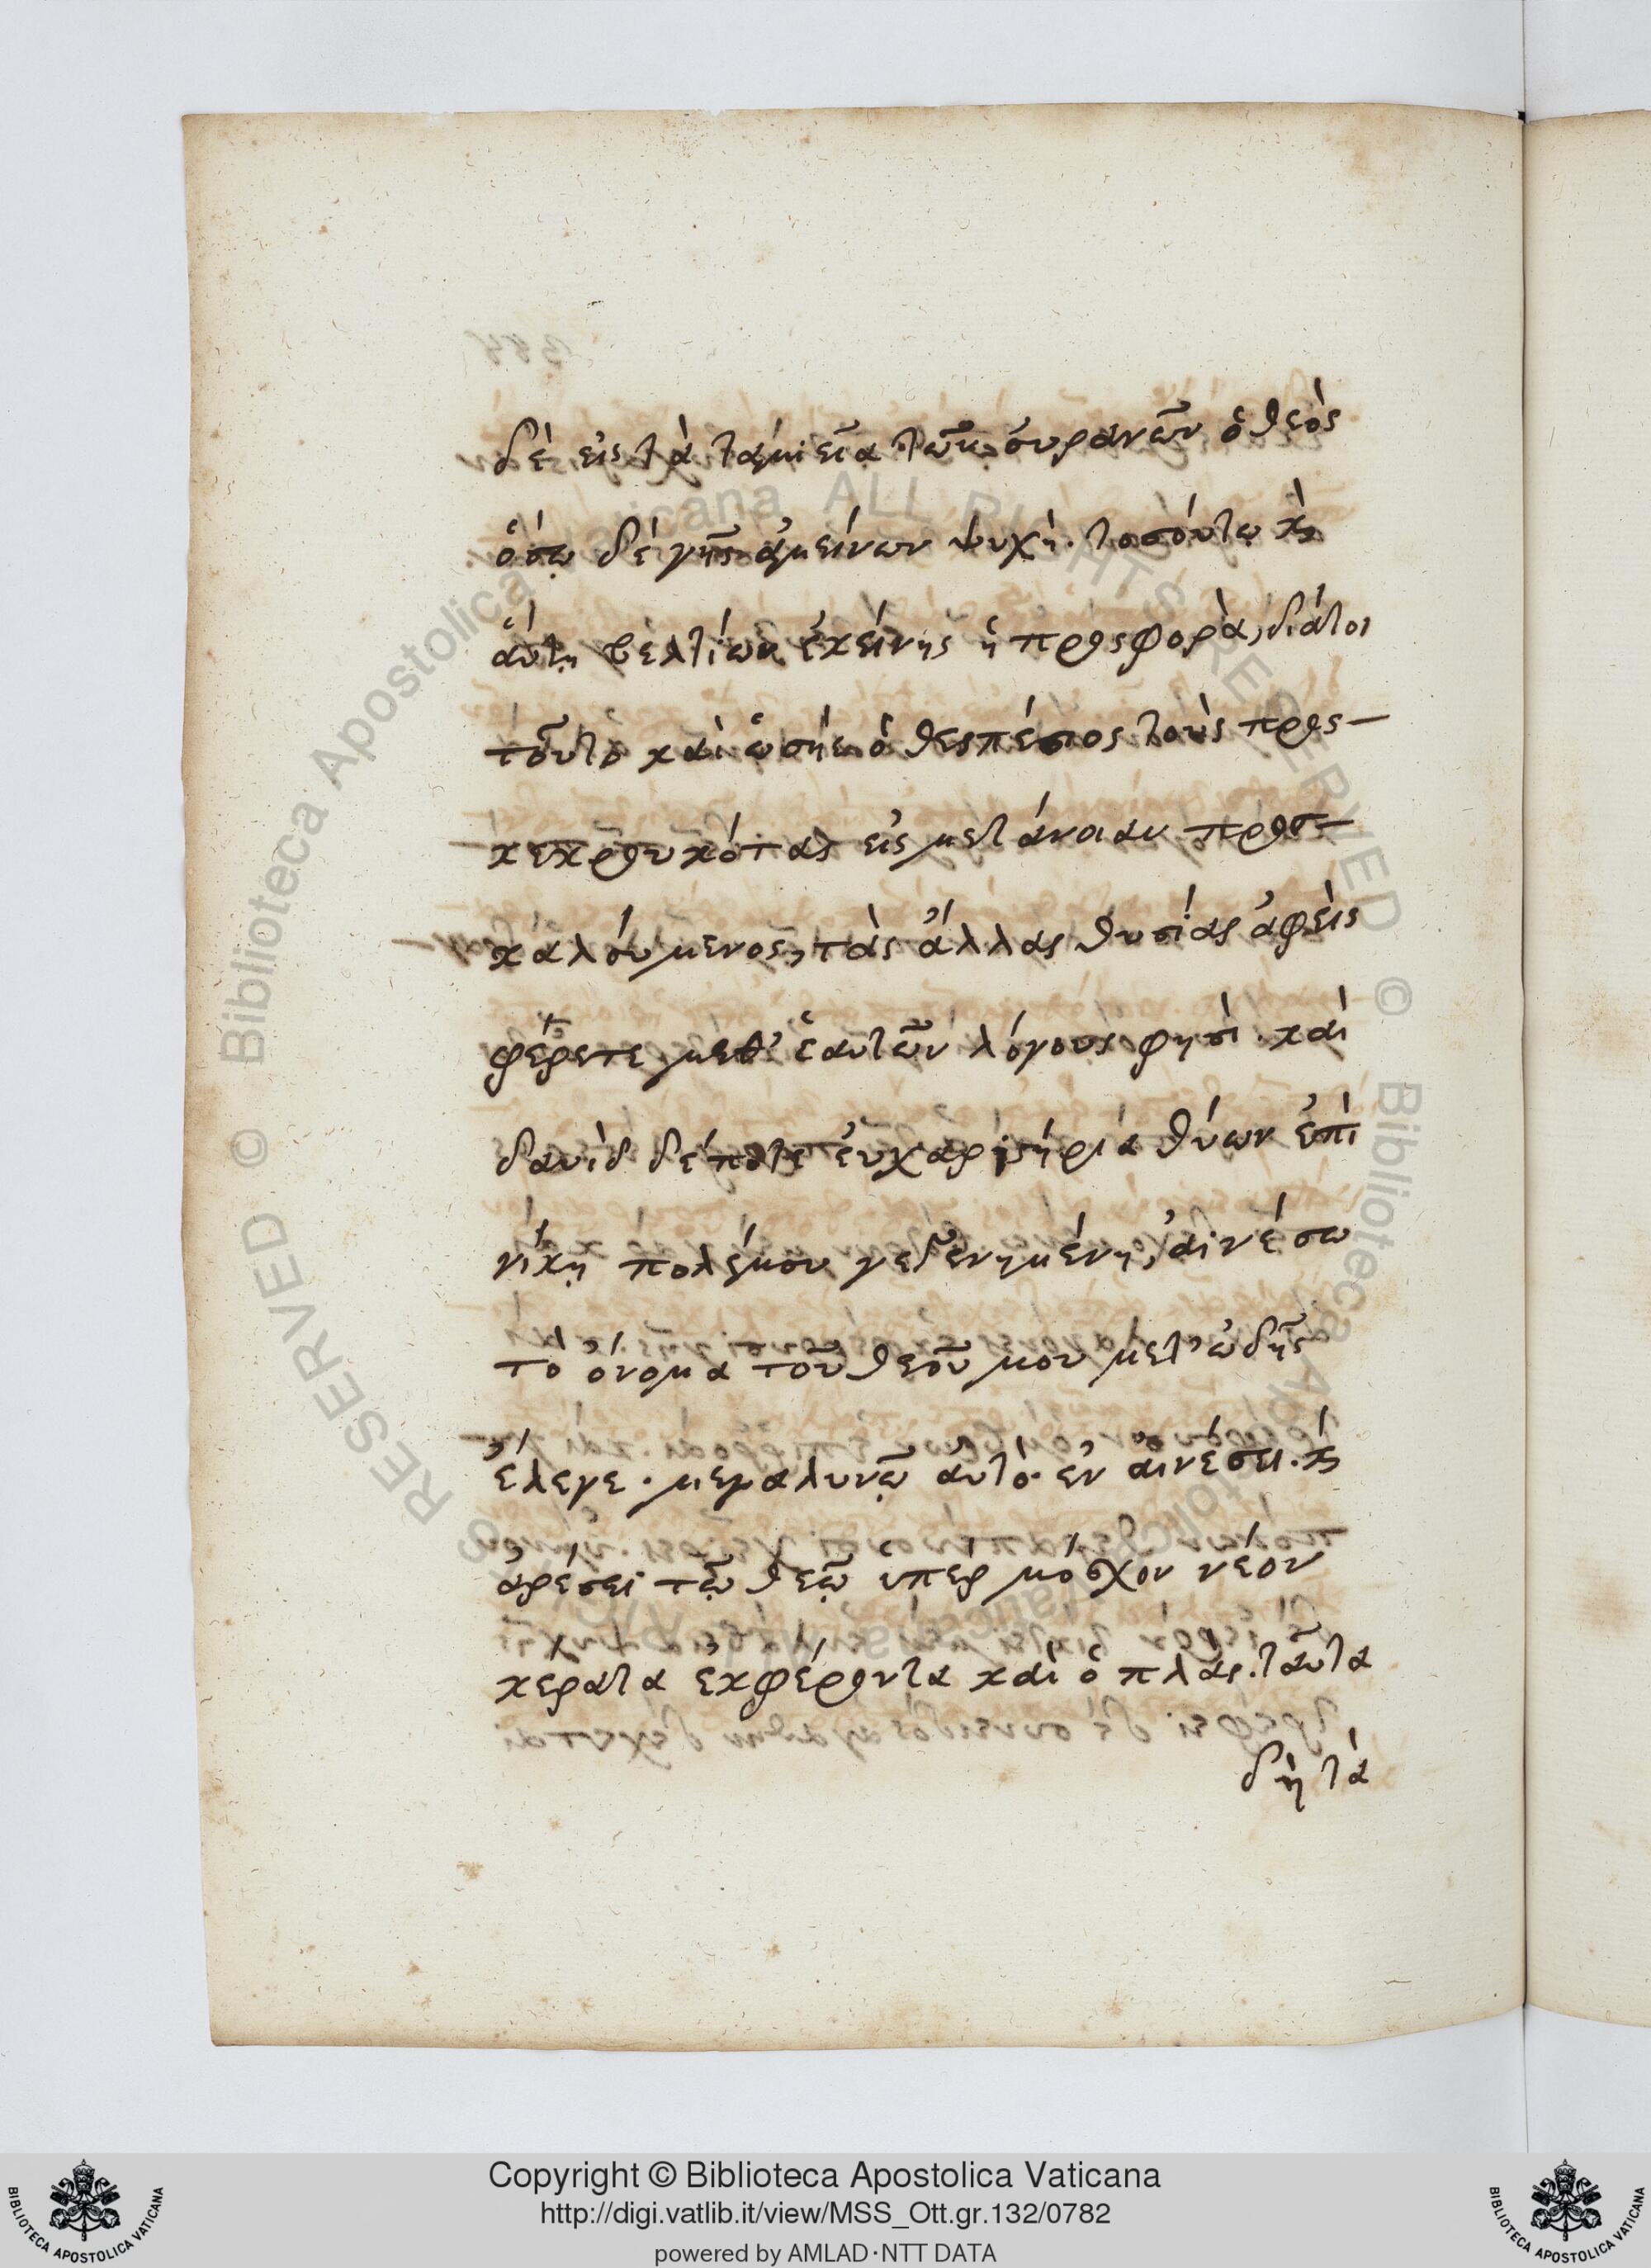 δὲ εἰς τὰ ταμιεῖα τῶν οὐρανῶν ὁ θεὸς
ὅσῳ δὲ γῆς ἀμείνων ψυχὴ. τοσούτῳ κὶ
αὕτη βελτίων ἐκείνης ἡ προσφορὰ, διάτοι
τοῦτο καὶ ὡσηὲ ὁ θεσπέσιος τοὺς προσ-
κεκρουκότας εἰς μετάνοιαν προσ-
καλούμενος, τὰς ἄλλας θυσίας ἀφεὶς
φέρετε μεθ' ἑαυτῶν λόγους φησὶ. καὶ
δαυὶδ δέποτε εὐχαριστήρια θύων ἐπὶ
νίκῃ πολέμου γεγενημένῃ, αἰνέσω
τὸ ὄνομα τοῦ θεοῦ μου μετ' ὠδῆς
ἔλεγε. μεγαλυνῶ αὐτὸ. ἐν αἰνέσει. κὶ
ἀρέσει τῷ θεῷ ὑπὲρ μόσχον νέον
κέρατα ἐκφέροντα καὶ ὁπλάς. ταῦτα
δὴ τὰ
RESERVED © Biblioteca Apostolica Vaticana ALL RIGHTS RESERVED © Biblioteca Apostolica Vaticana
Copyright © Biblioteca Apostolica Vaticana
http://digi.vatlib.it/view/MSS_Ott.gr.132/0782
powered by AMLAD·NTT DATA
BIBLIOTECA APOSTOLICA VATICANA
BIBLIOTECA APOSTOLICA VATICANA